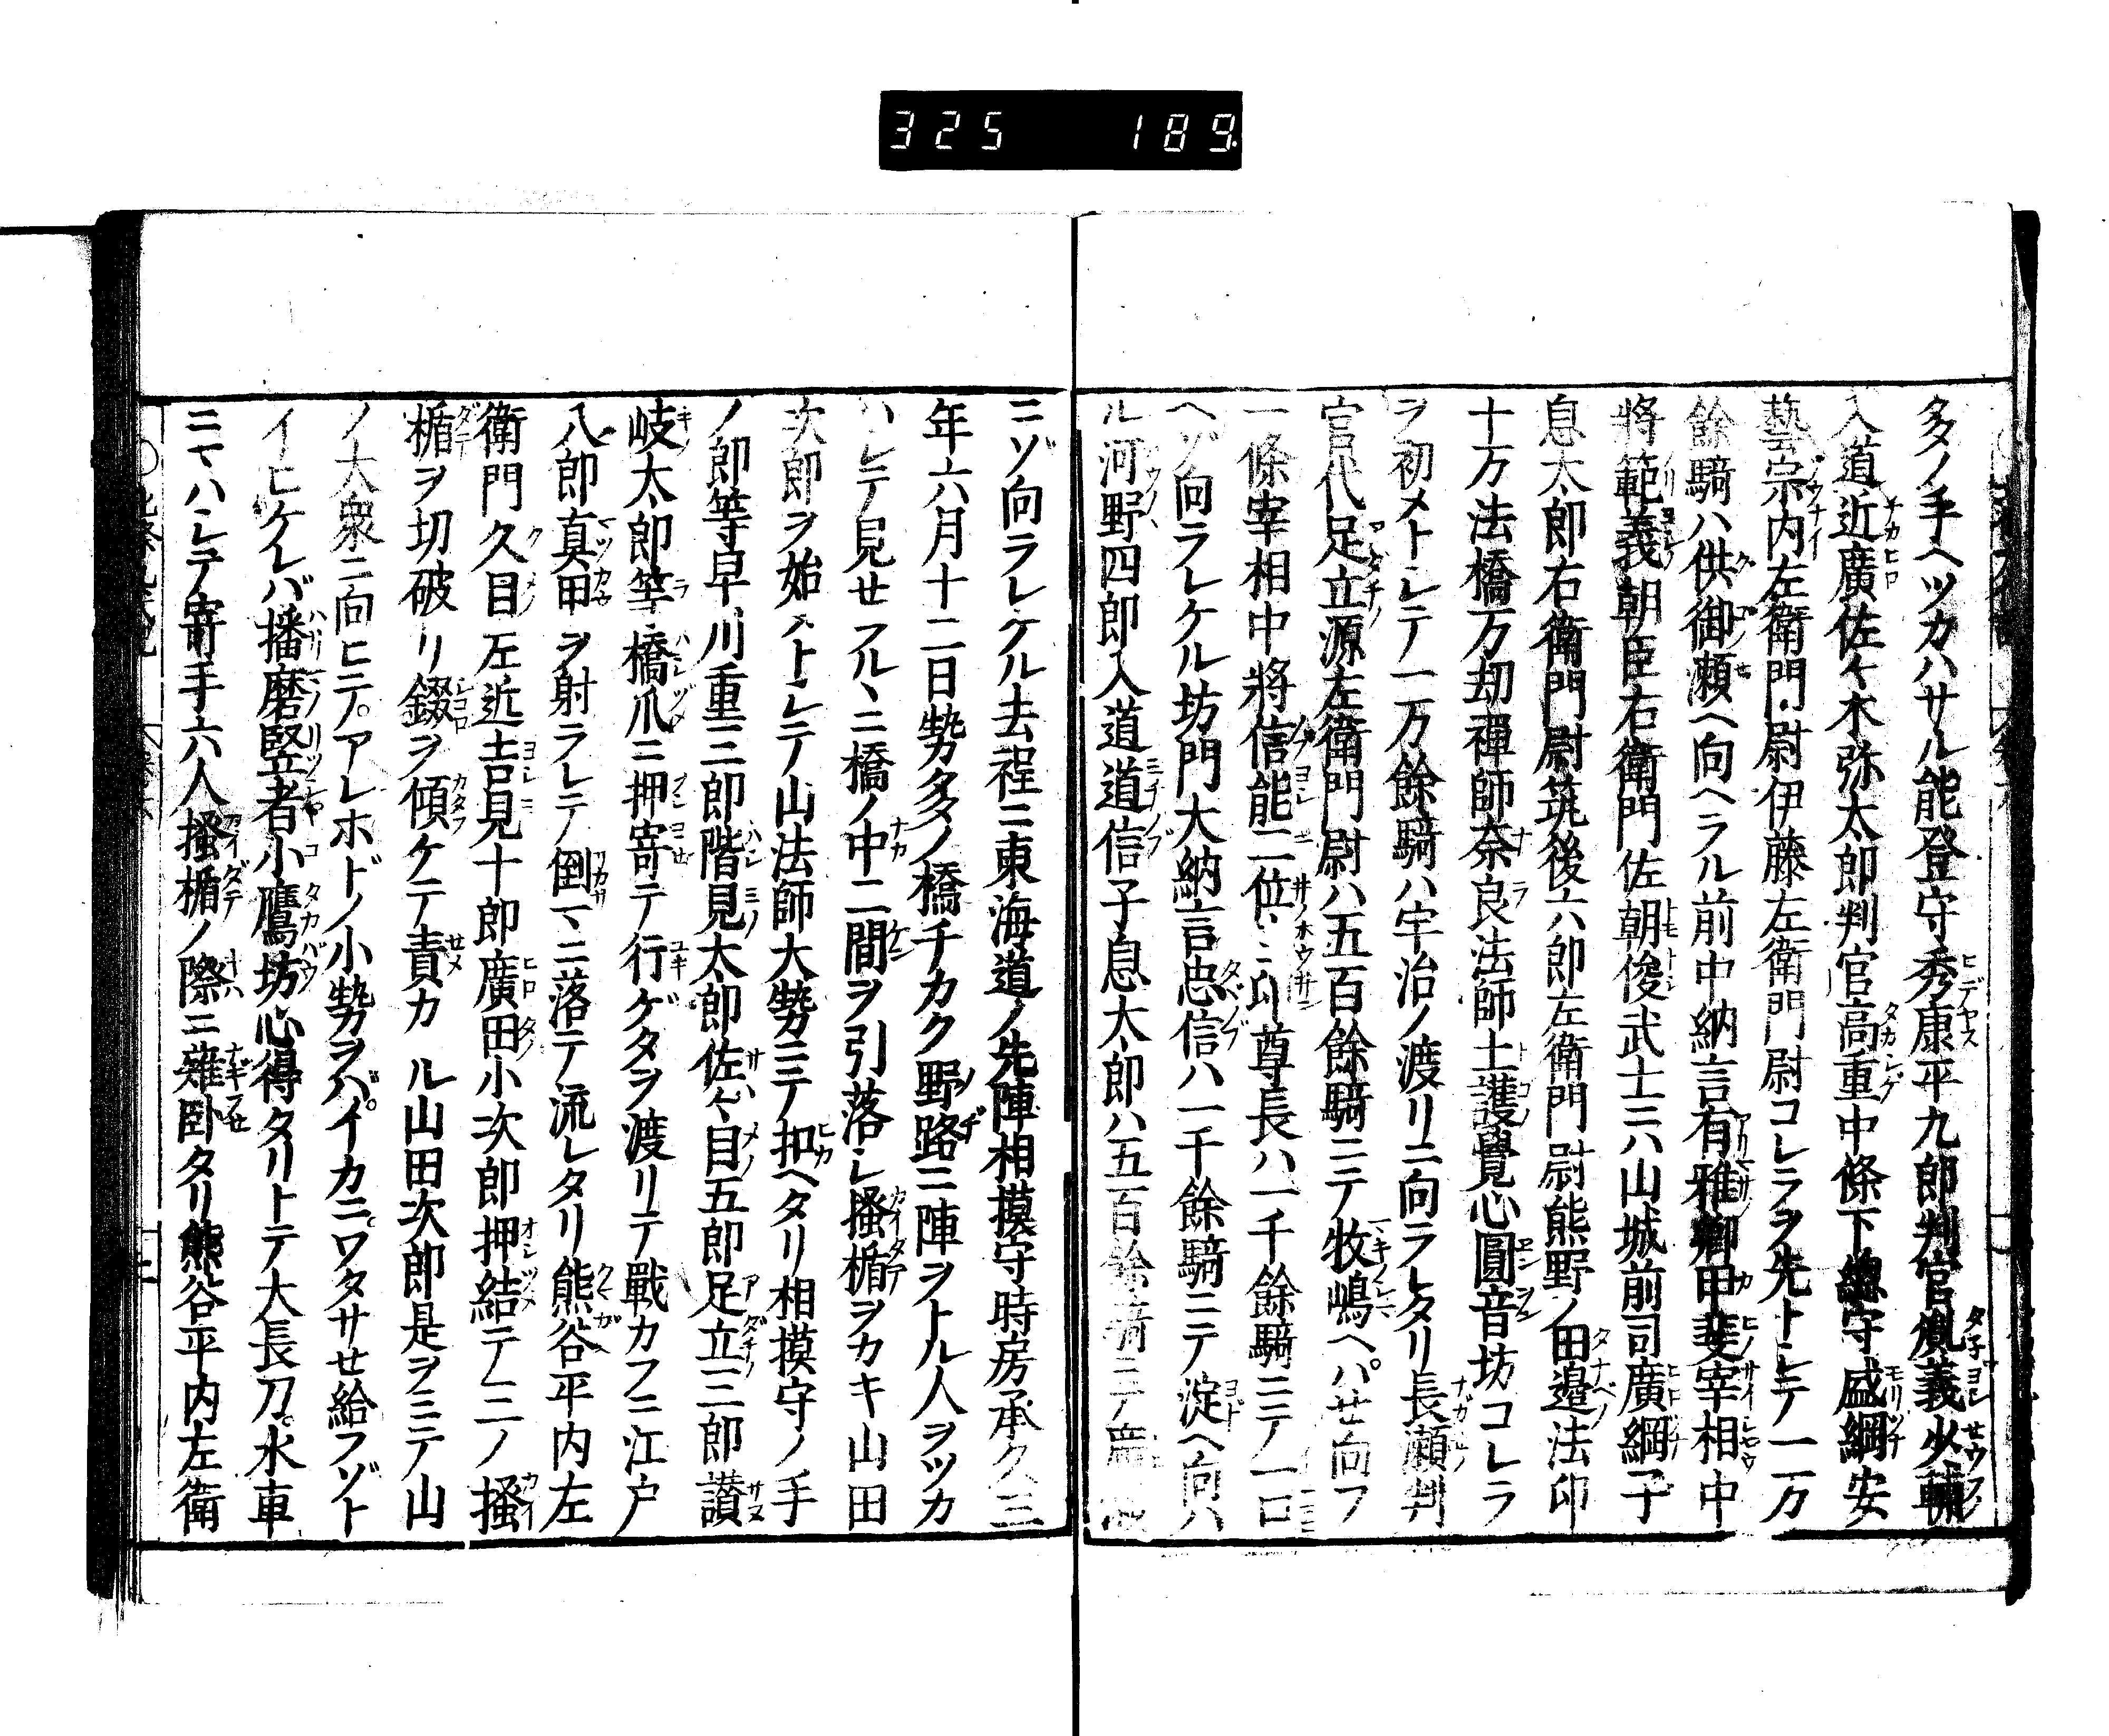 325 189
多クノ手ヘツカハサル能登守秀康平九郎判官胤義少輔
入道近廣佐々木弥太郎判官高重中條下總守盛綱安
藝宗内左衛門尉伊藤左衛門尉コレラヲ先トシテ一万
餘騎ハ供御瀬ヘ向ヘラル前中納言有雅卿甲斐宰相中
將範義朝臣右衛門佐朝俊武士ニハ山城前司廣綱子
息太郎右衛門尉筑後六郎左衛門尉熊野ノ田邉法印
十万法橋万劫禪師奈良法師土護覺心圓音坊コレラ
ヲ初メトシテ一万餘騎ハ宇治ノ渡リニ向ラレタリ長瀬判
官代足立源左衛門尉ハ五百餘騎ニテ牧嶋ヘハセ向フ
一條宰相中將信能二位法印尊長ハ一千餘騎ニテ一口
ヘゾ向ラレケル坊門大納言忠信ハ一千餘騎ニテ淀ヘ向ハ
ル河野四郎入道道信子息太郎ハ五百餘騎ニテ廣瀬
ニゾ向ラレケル去程ニ東海道ノ先陣相摸守時房承久三
年六月十二日勢多ノ橋チカク野路ニ陣ヲトル人ヲツカ
ハシテ見セフルヽニ橋ノ中二間ヲ引落シ掻楯ヲカキ山田
次郎ヲ始メトシテ山法師大勢ニテ扣ヘタリ相摸守ノ手
ノ郎等早川重三郎階見太郎佐々目五郎足立三郎讃
岐太郎等橋爪ニ押寄テ行ゲタヲ渡リテ戰カフニ江戸
八郎真甲ヲ射ラレテ倒マニ落テ流レタリ熊谷平内左
衛門久目左近吉見十郎廣田小次郎押結テ二ノ掻
楯ヲ切破リ錣ヲ傾ケテ責カヽル山田次郎是ヲミテ山
ノ大衆ニ向ヒテアレホドノ小勢ヲバイカニワタサセ給フゾト
イヒケレバ播磨竪者小鷹坊心得タリトテ大長刀水車
ニマハシテ寄手六人掻楯ノ際ニ薙臥タリ熊谷平内左衛